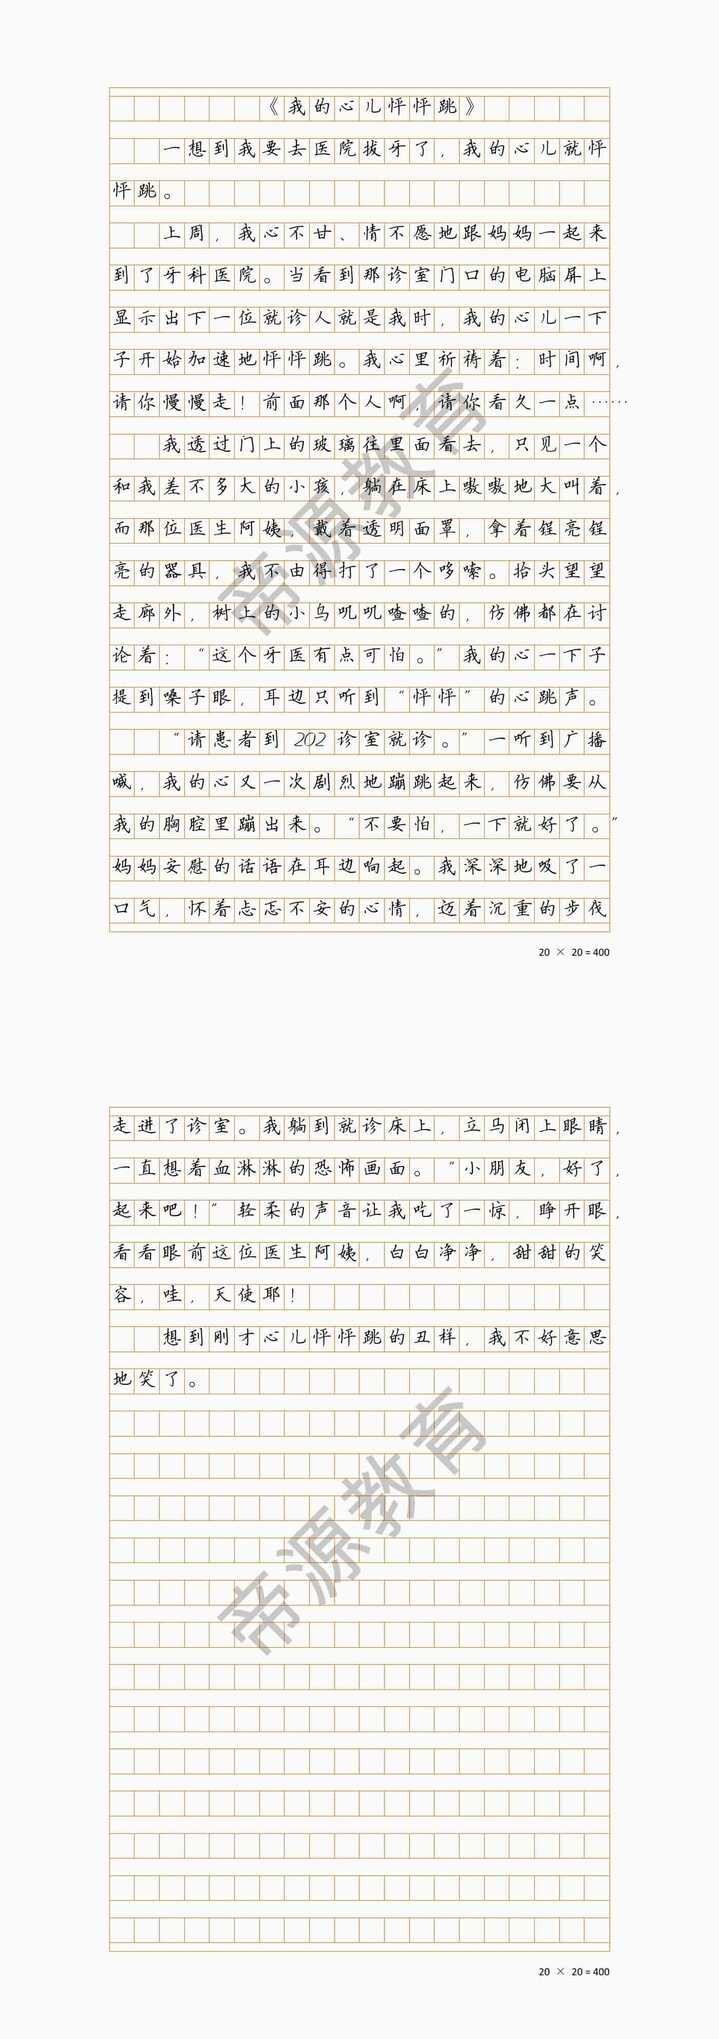 《我的心儿怦怦跳》
一想到我要去医院拔牙了，我的心儿就怦
怦跳。
上周，我心不甘、情不愿地跟妈妈一起来
到了牙科医院。当看到那诊室门口的电脑屏上
显示出下一位就诊人就是我时，我的心儿一下
子开始加速地怦怦跳。我心里祈祷着：时间啊，
请你慢慢走！前面那个人啊，请你看久一点……
我透过门上的玻璃往里面看去，只见一个
和我差不多大的小孩，躺在床上嗷嗷地大叫着，
而那位医生阿姨，戴着透明面罩，拿着锃亮锃
亮的器具，我不由得打了一个哆嗦。抬头望望
走廊外，树上的小鸟叽叽喳喳的，仿佛都在讨
论着：“这个牙医有点可怕。”我的心一下子
提到嗓子眼，耳边只听到“怦怦”的心跳声。
“请患者到202诊室就诊。”一听到广播
喊，我的心又一次剧烈地蹦跳起来，仿佛要从
我的胸腔里蹦出来。“不要怕，一下就好了。”
妈妈安慰的话语在耳边响起。我深深地吸了一
口气，怀着忐忑不安的心情，迈着沉重的步伐
20 × 20 = 400
走进了诊室。我躺到就诊床上，立马闭上眼睛，
一直想着血淋淋的恐怖画面。“小朋友，好了，
起来吧！”轻柔的声音让我吃了一惊，睁开眼，
看看眼前这位医生阿姨，白白净净，甜甜的笑
容，哇，天使耶！
想到刚才心儿怦怦跳的丑样，我不好意思
地笑了。
20 × 20 = 400
帝源教育
帝源教育